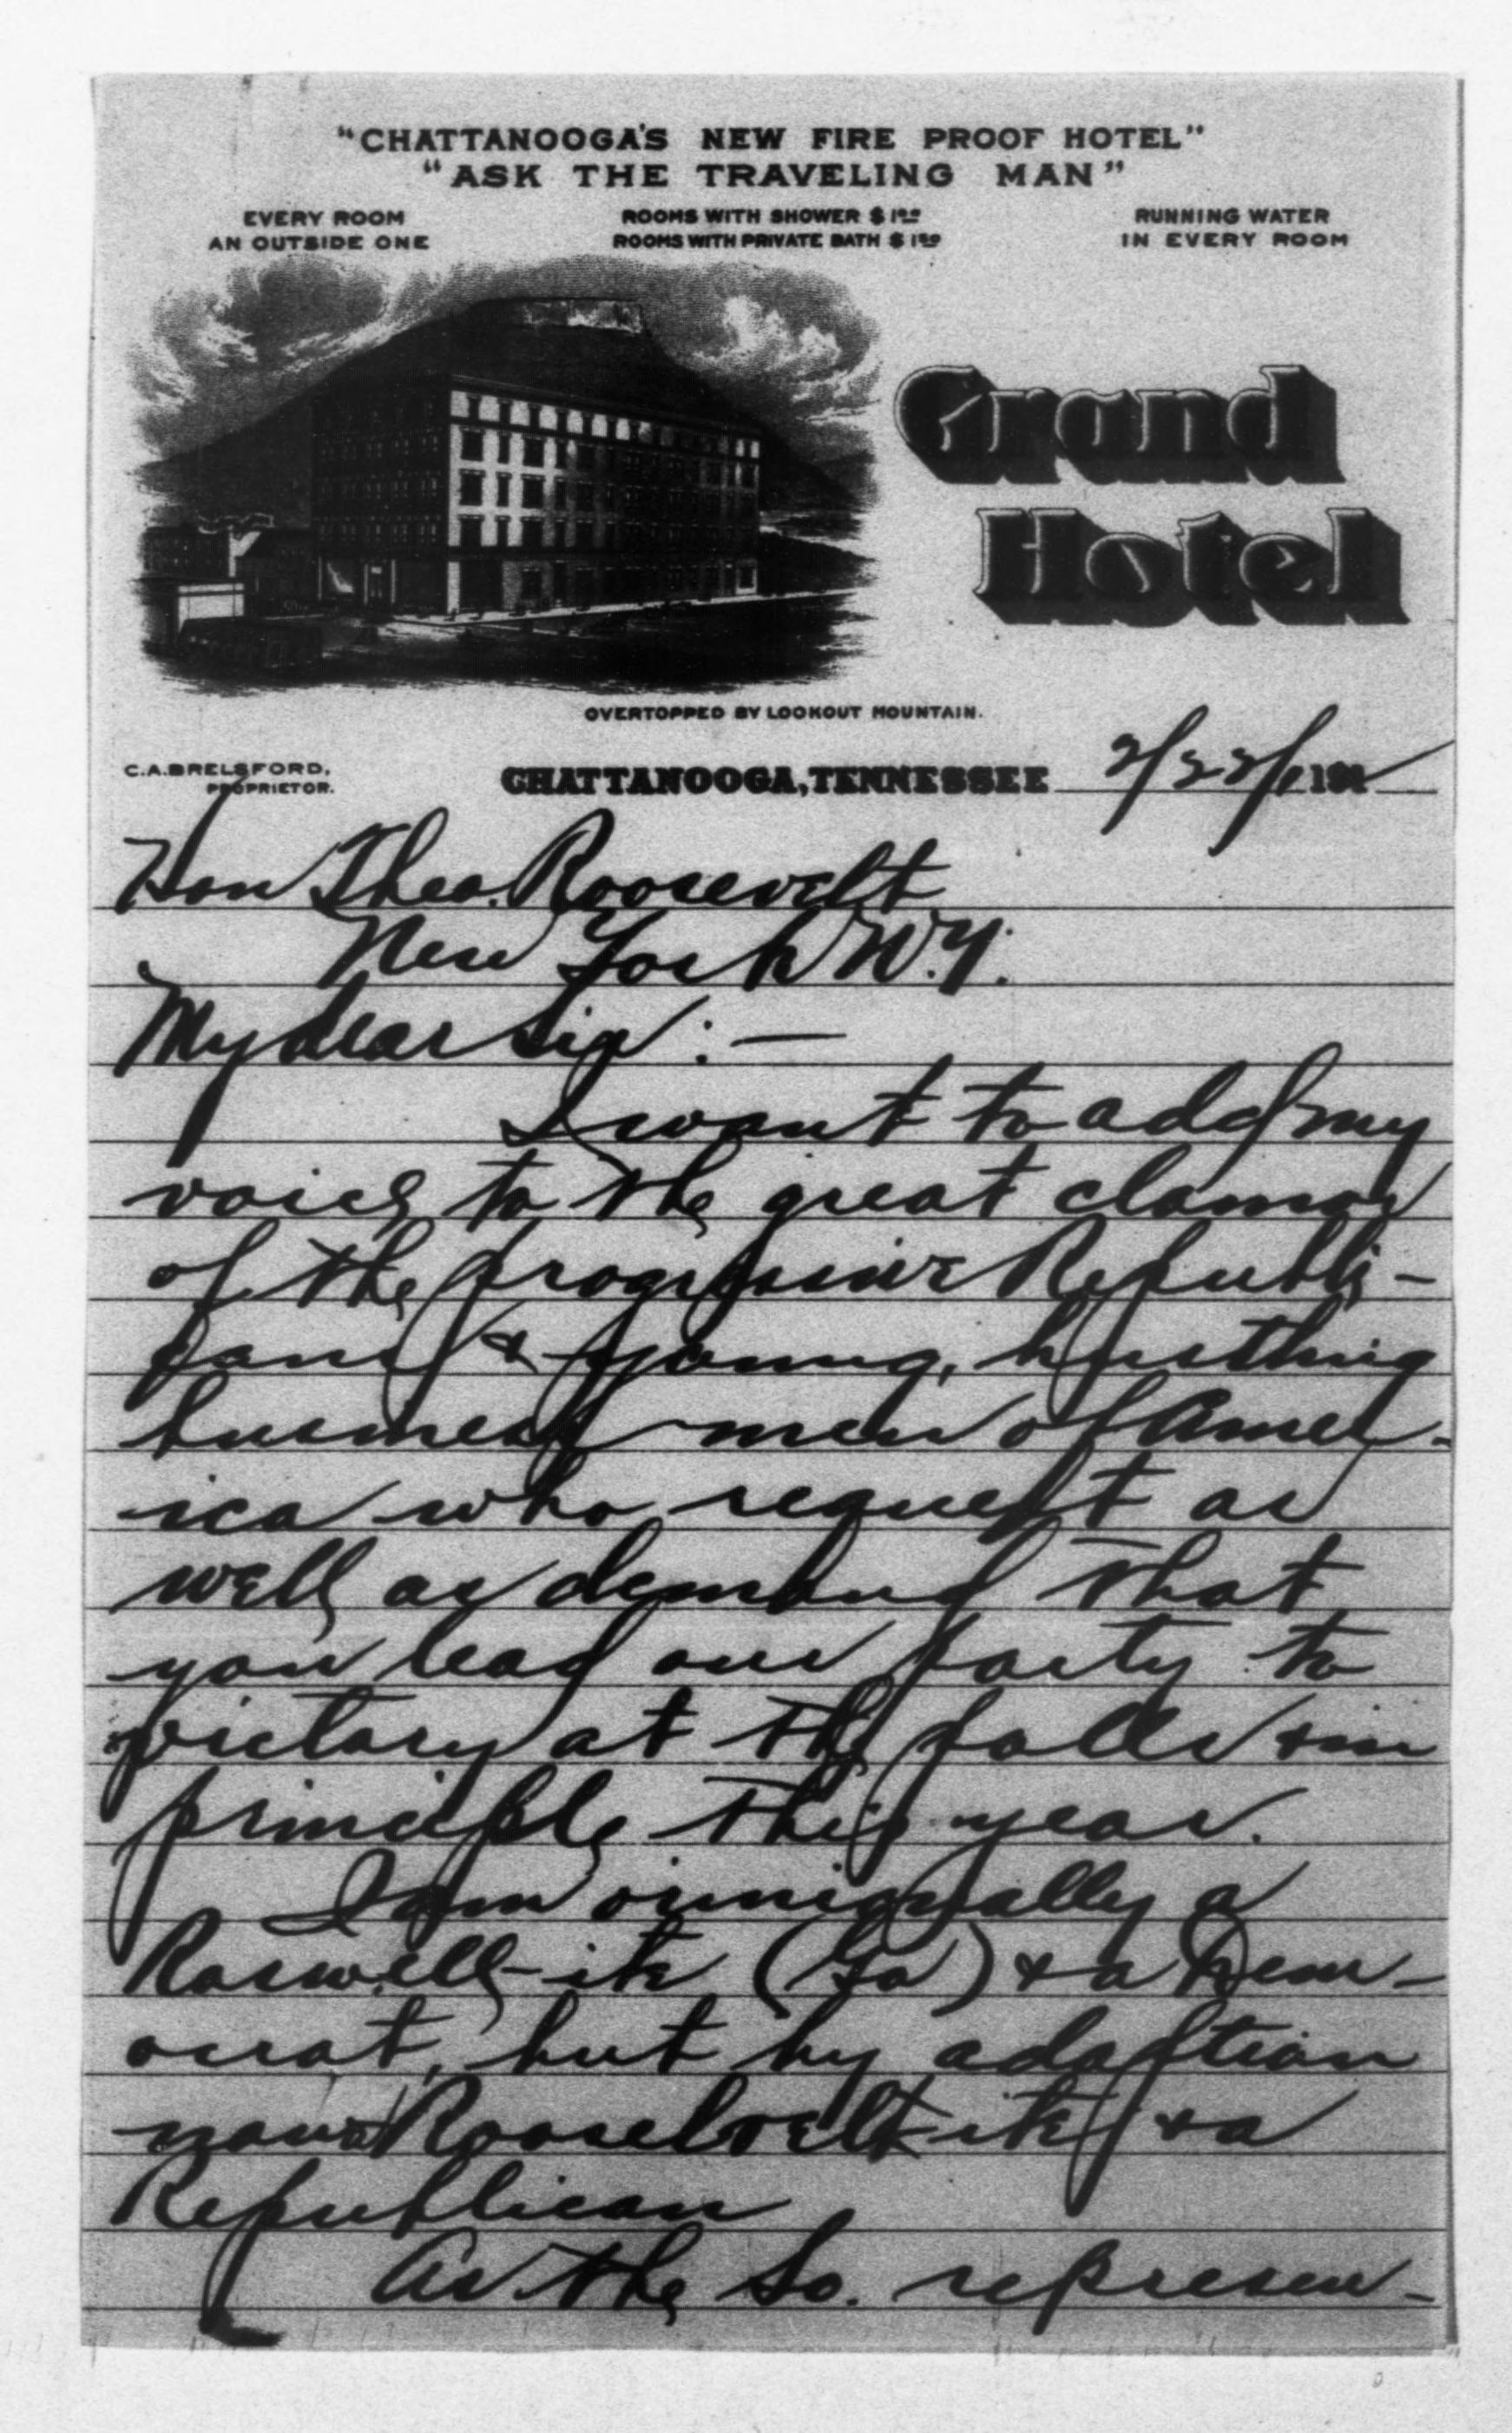 "CHATTANOOGA'S NEW FIRE PROOF HOTEL"
"ASK THE TRAVELING MAN"
EVERY ROOM
AN OUTSIDE ONE
ROOMS WITH SHOWER $1.00
ROOMS WITH PRIVATE BATH $1.50
RUNNING WATER
IN EVERY ROOM
Grand
Hotel
OVERTOPPED BY LOOKOUT MOUNTAIN.
C.A. BRELSFORD,
PROPRIETOR.
CHATTANOOGA, TENNESSEE 2/22/191
Hon Theo. Roosevelt
New York N.Y.
My dear Sir: —
I want to add my
voice to the great clamor
of the progressive Republi-
cans & young, husthing
business men of Amer-
ica who request as
well as demand that
you lead our party to
victory at the polls & in
principle this year.
I am originally a
Roswell-ite (Ga) & a Dem-
ocrat, but by adoption
now a Rooselvelt-ite & a
Republican
As the So. represen-